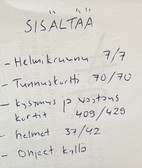 SISÄLTÄÄ
- Helmikruunu 7/7
- Tunnuskortti 70/70
- kysymys ja vastaus
kortit 409/429
- helmet 37/42
- Ohjeet kyllä